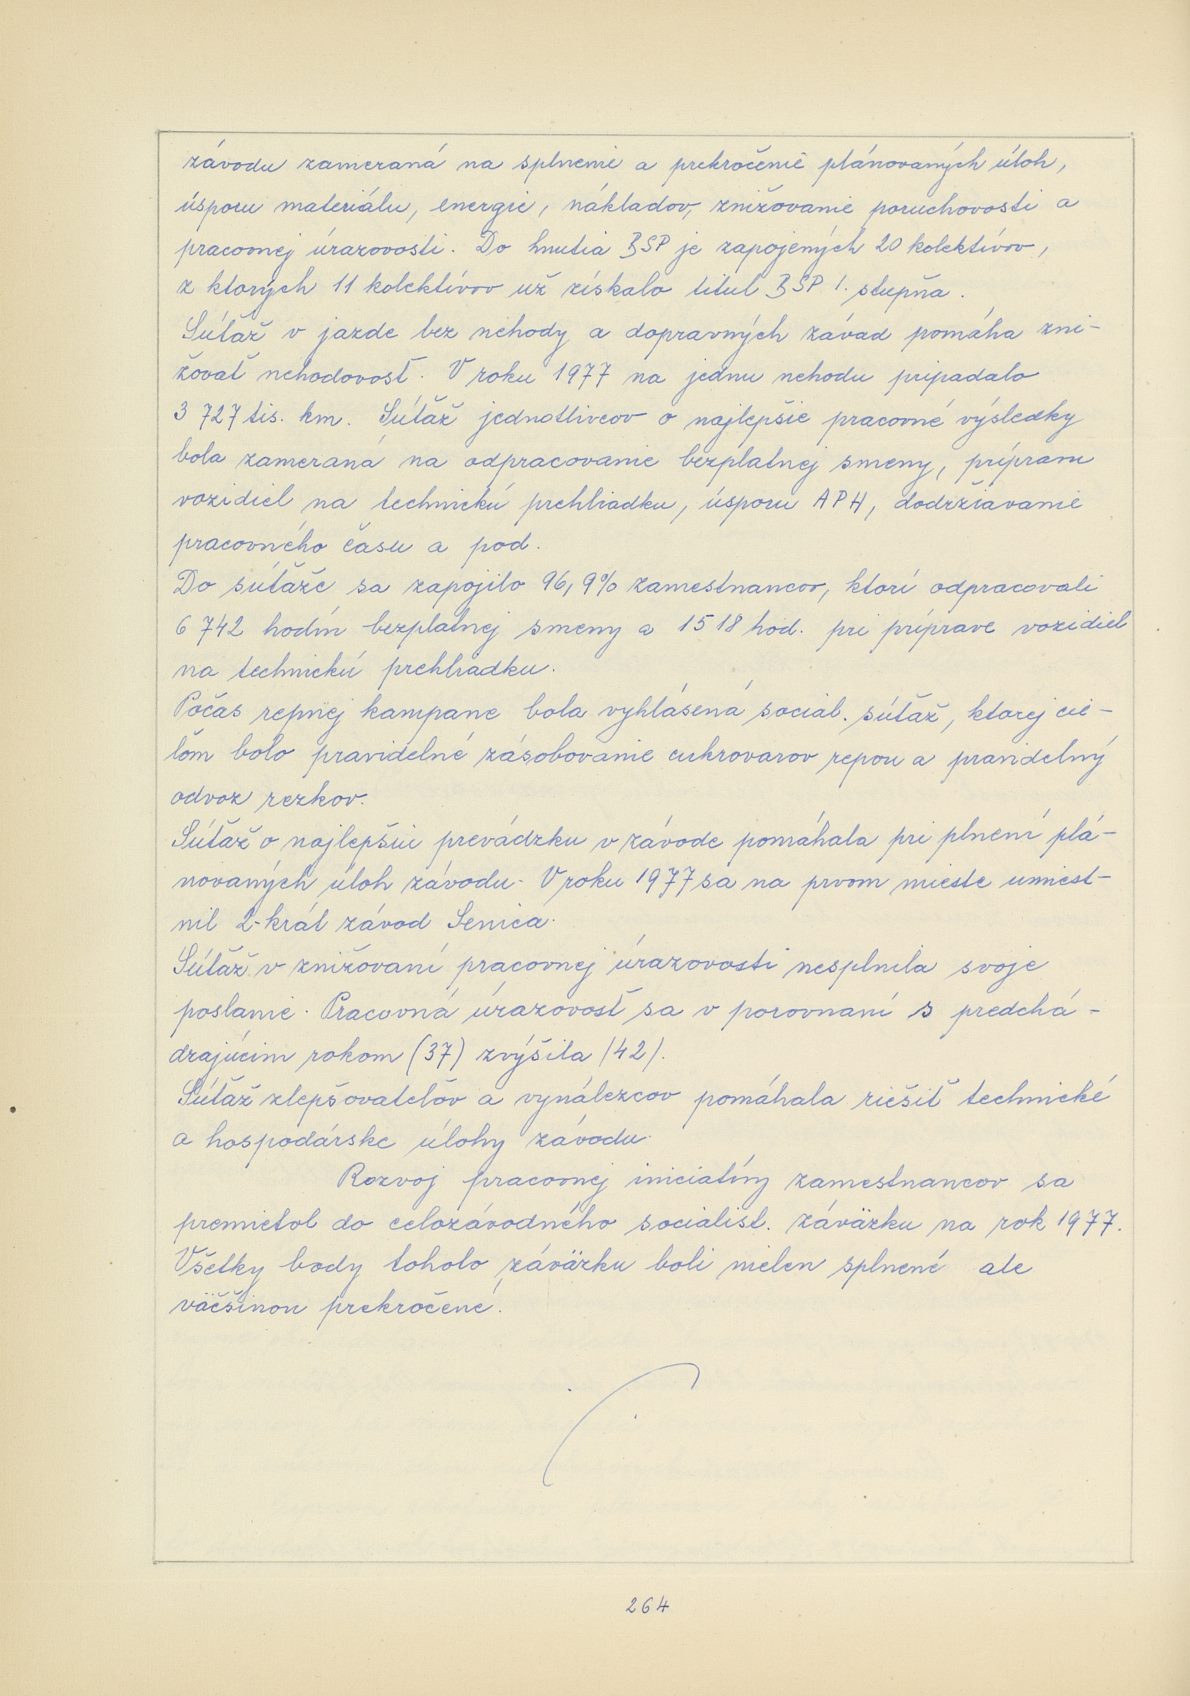 závodu zameraná na splnenie a prekročenie plánovaných úloh,
úsporu materiálu, energie, nákladov, znižovanie poruchovosti a
pracovnej úrazovosti. Do hnutia BSP je zapojených 20 kolektívov,
z ktorých 11 kolektívov už získalo titul BSP I. stupňa.
Súťaž v jazde bez nehody a dopravných závad pomáha zni-
žovať nehodovosť. V roku 1977 na jednu nehodu pripadalo
3 727 tis. km. Súťaž jednotlivcov o najlepšie pracovné výsledky
bola zameraná na odpracovanie bezplatnej smeny, prípravu
vozidiel na technickú prehliadku, úsporu APH, dodržiavanie
pracovného času a pod.
Do súťaže sa zapojilo 96,9% zamestnancov, ktorí odpracovali
6 742 hodín bezplatnej smeny a 1518 hod. pri príprave vozidiel
na technickú prehliadku.
Počas repnej kampane bola vyhlásená social. súťaž, ktorej cie-
ľom bolo pravidelné zásobovanie cukrovarov repou a pravidelný
odvoz rezkov.
Súťaž o najlepšiu prevádzku v závode pomáhala pri plnení plá-
novaných úloh závodu. V roku 1977 sa na prvom mieste umiest-
nil 2-krát závod Senica.
Súťaž v znižovaní pracovnej úrazovosti nesplnila svoje
poslanie. Pracovná úrazovosť sa v porovnaní s predchá-
dzajúcim rokom (37) zvýšila /42/.
Súťaž zlepšovateľov a vynálezcov pomáhala riešiť technické
a hospodárske úlohy závodu.
Rozvoj pracovnej iniciatívy zamestnancov sa
premietol do celozávodného socialist. záväzku na rok 1977.
Všetky body tohoto záväzku boli nielen splnené ale
väčšinou prekročené.
264